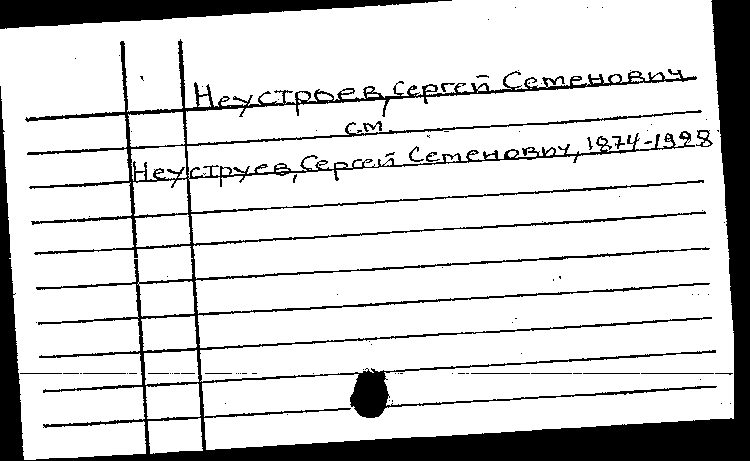 Неустроев, Сергей Семенович
см.
Неуструев, Сергей Семенович, 1874-1928